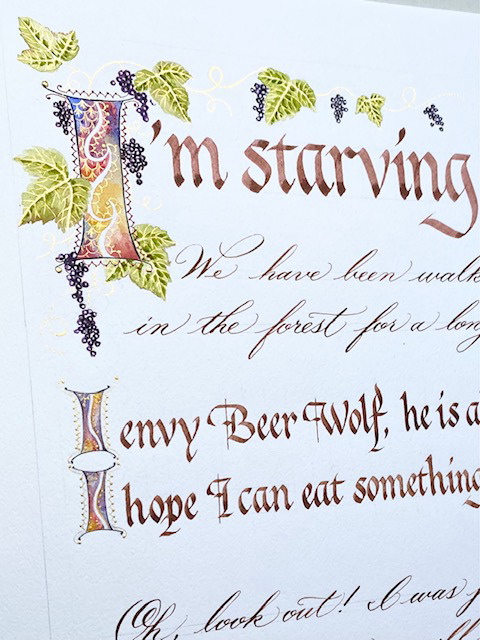 I'm starving
We have been walk
in the forest for a long
I envy Beer Wolf, he is a
I hope I can eat something
Oh, look out! I was